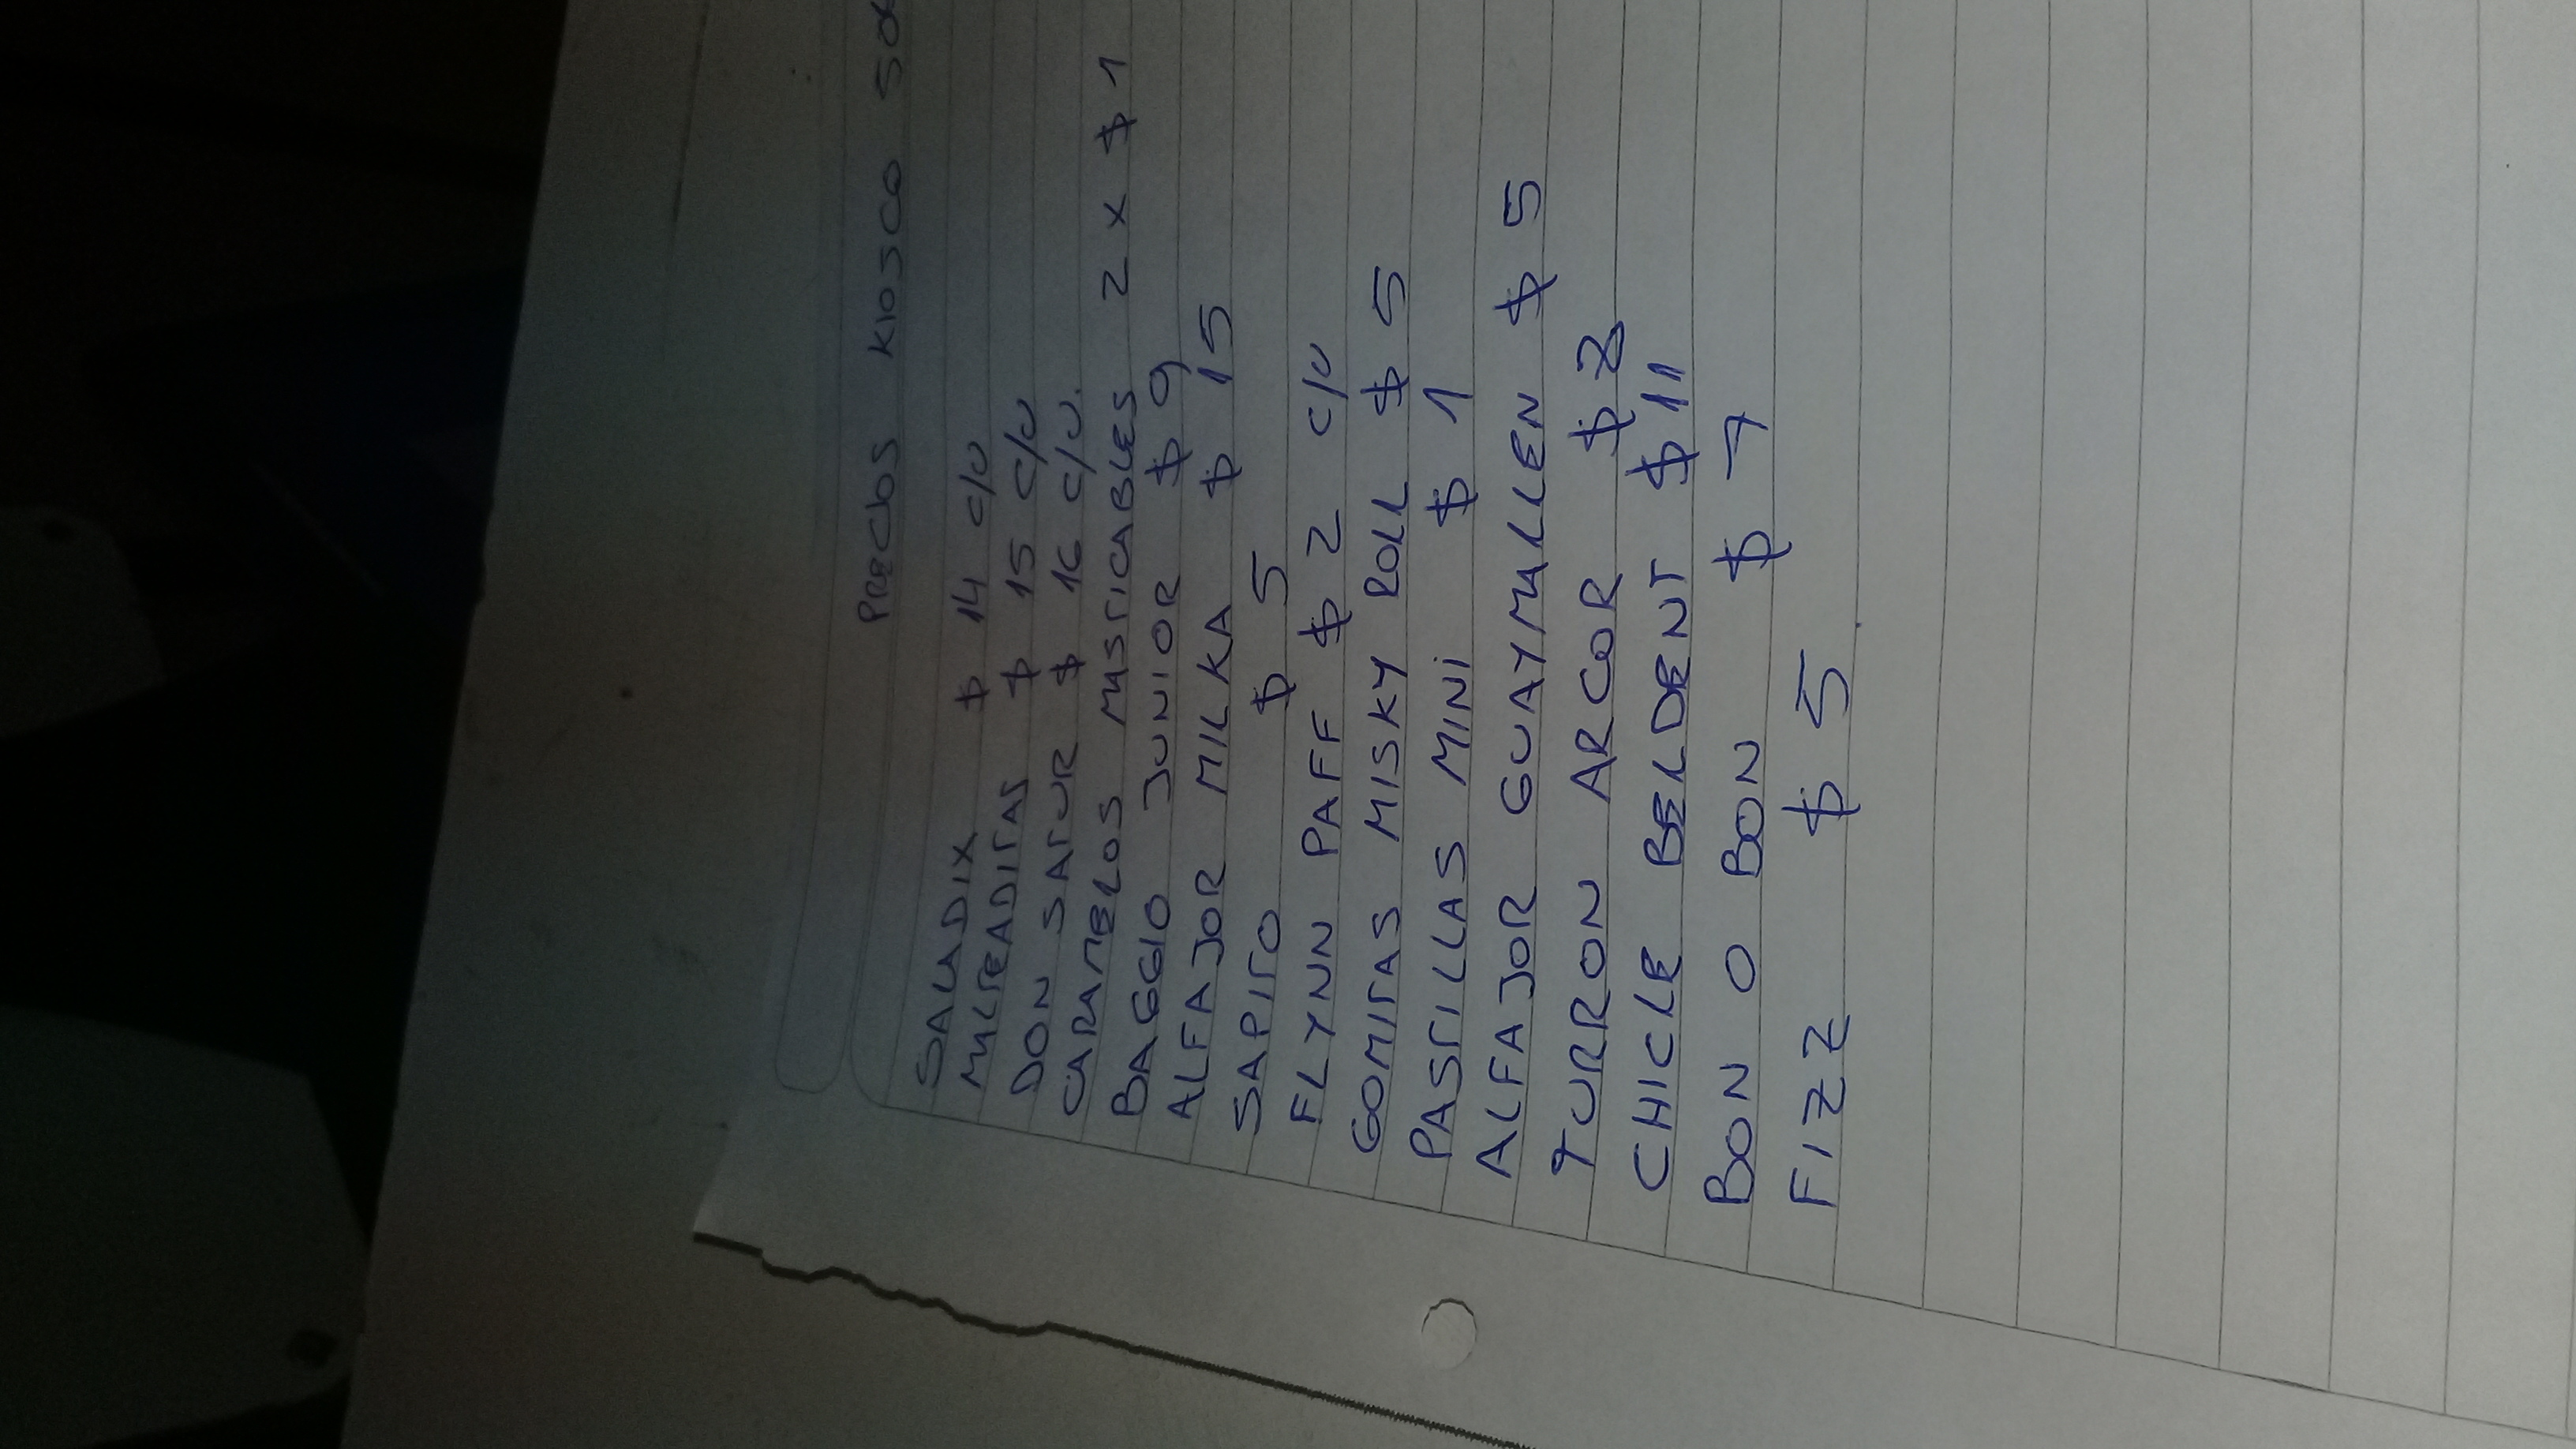 PRECIOS KIOSCO
SALADIX $ 14 C/U
MALTEADITAS $ 15 C/U
DON SATUR $ 16 C/U.
CARAMELOS MASTICABLES 2 X $ 1
BAGGIO JUNIOR $ 9
ALFAJOR MILKA $ 15
SAPITO $ 5
FLYNN PAFF $ 2 C/U
GOMITAS MISKY ROLL $ 5
PASTILLAS MINI $ 1
ALFAJOR GUAYMALLEN $ 5
TURRON ARCOR $
CHICLE BELDENT $ 11
BON O BON $ 7
FIZZ $ 5